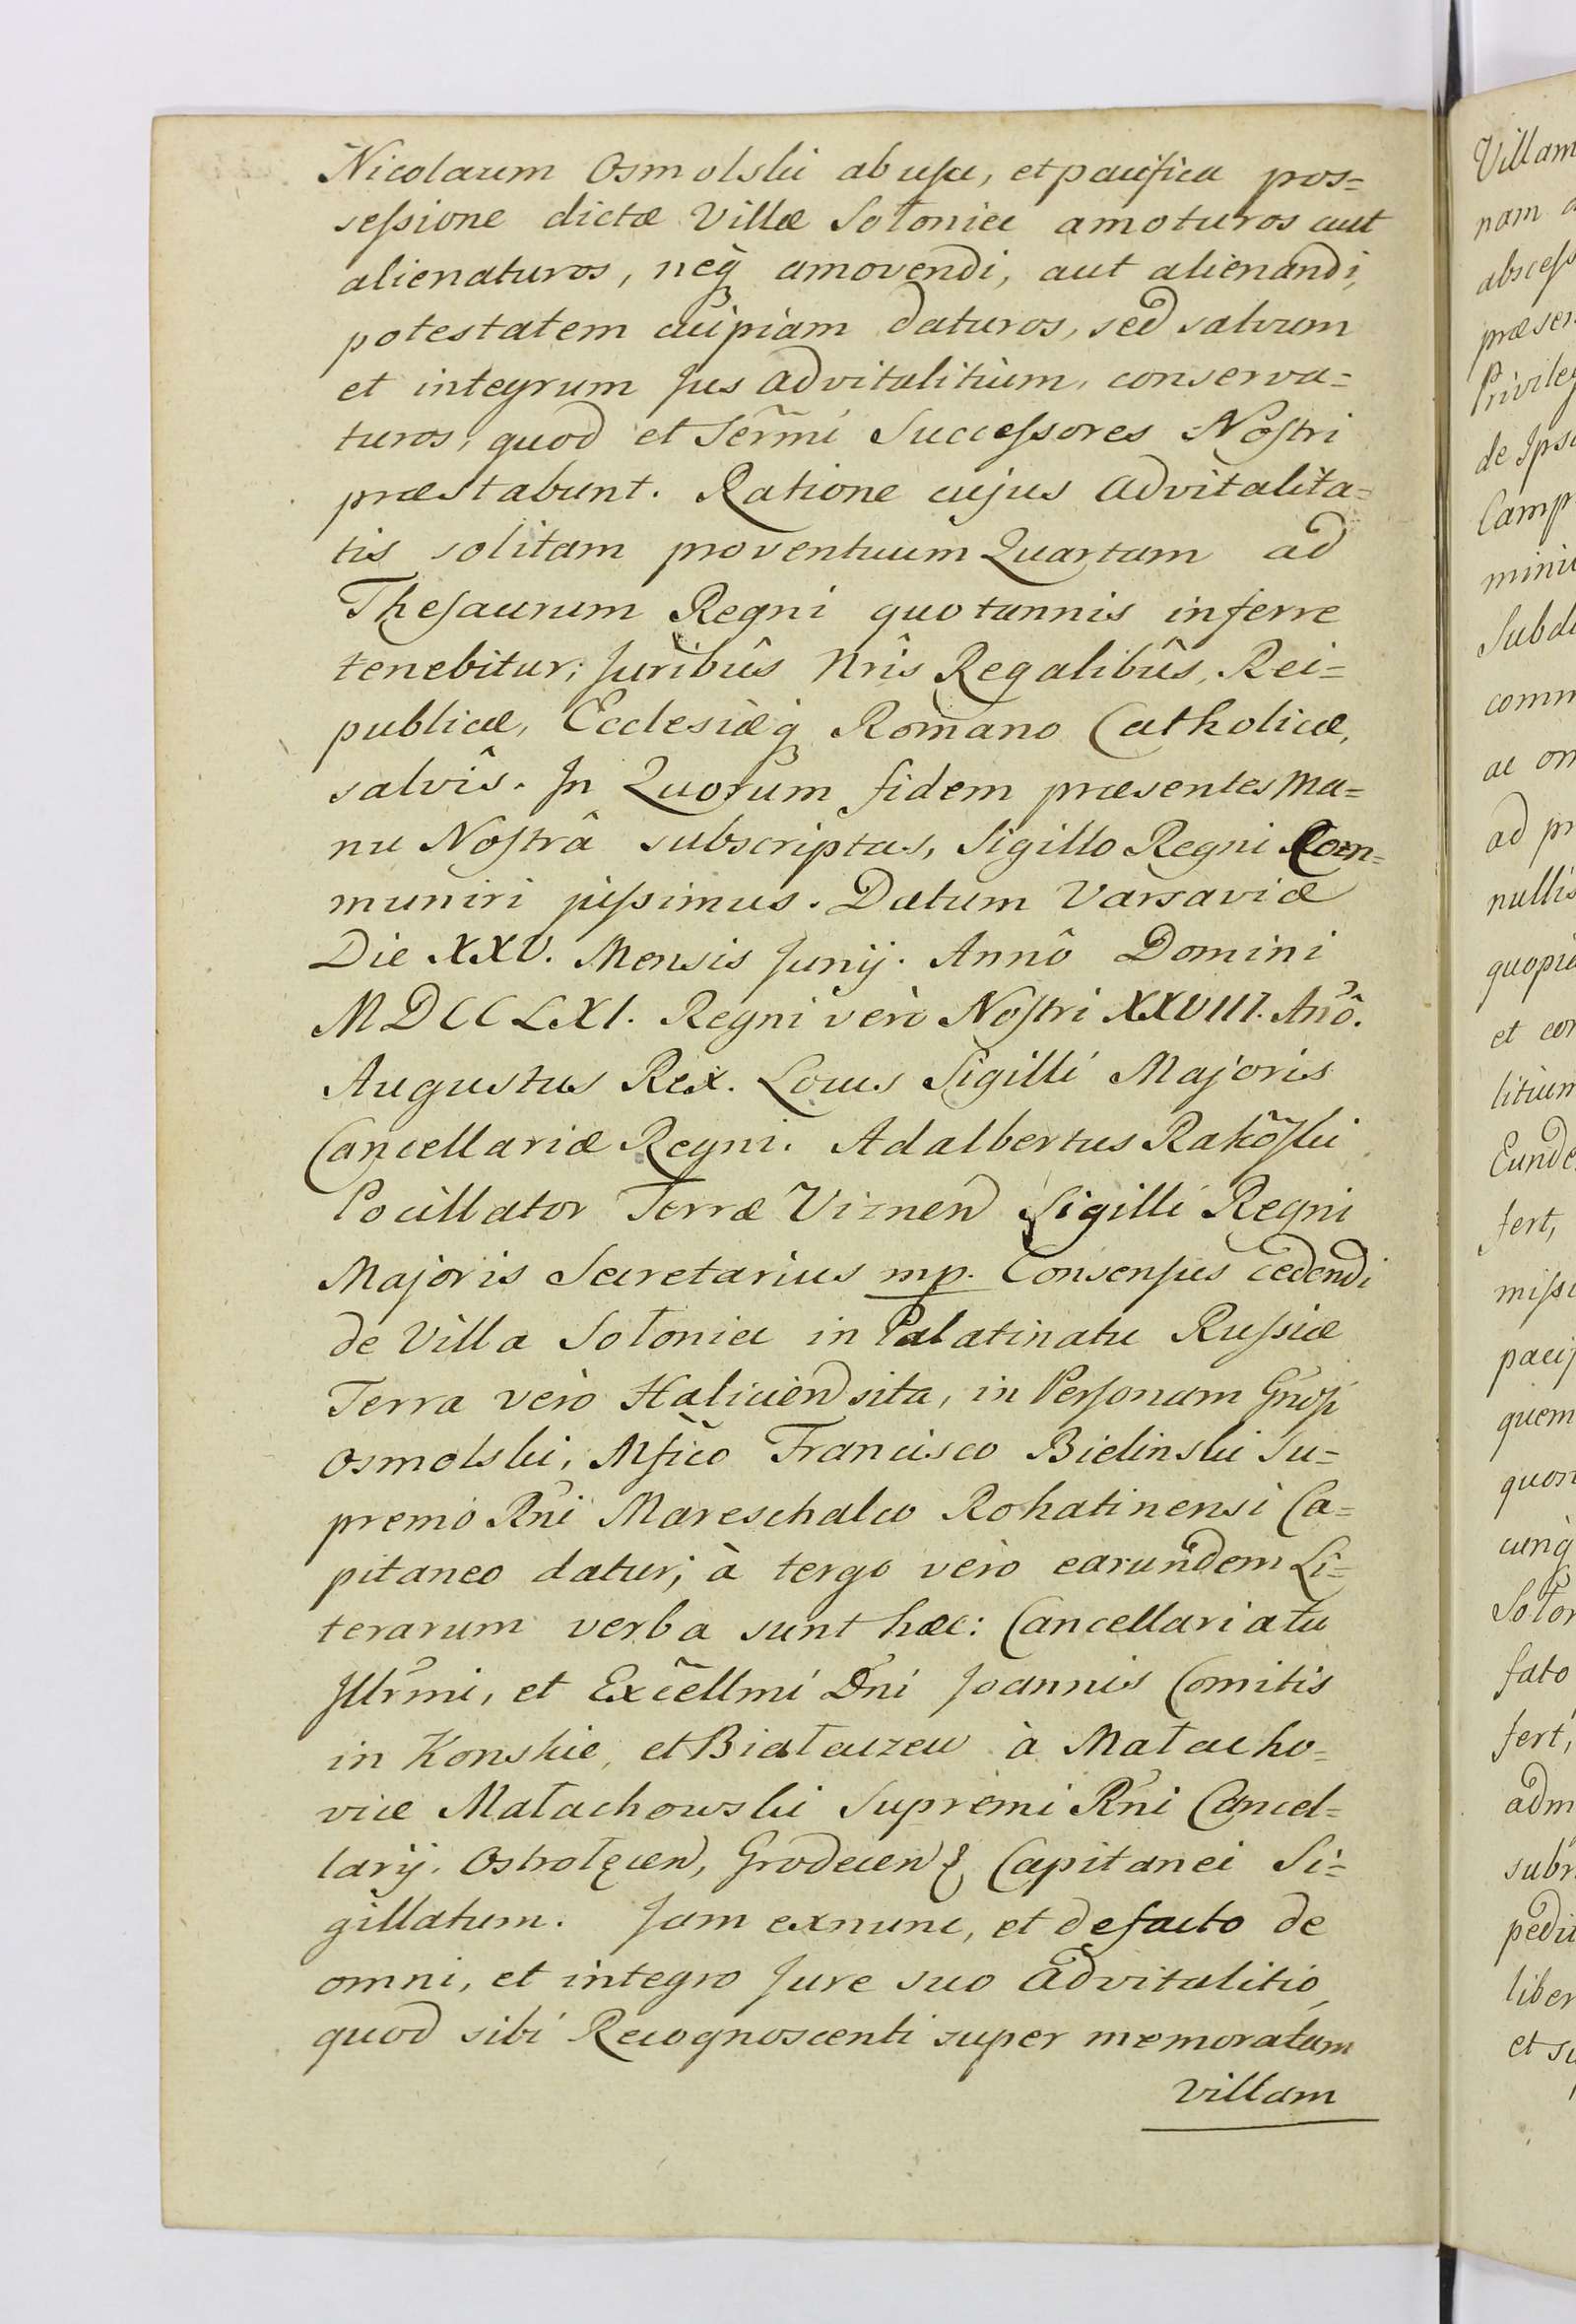 Nicolaum Osmolski ab usu, et pacifica pos=
sessione dictæ Villæ Sołonice amoturos aut
alienaturos, neq́ amovendi, aut alienandi,
potestatem cuipiam daturos, sed salvum
et integrum Jus advitalitium, conserva=
turos, quod et Serm̃i Successores Nostri
præstabunt. Ratione cujus advitalita=
tis solitam proventuum Quartam ad
Thesaurum Regni quotannis inferre
tenebitur; Juribûs Nrîs Regalibûs, Rei=
publicæ, Ecclesiæq́ Romano Catholicæ,
salvîs. In Quorum fidem præsentes Ma=
nu Nostrâ subscriptas, Sigillo Regni Com=
muniri jussimus. Datum Varsaviæ
Die XXV. Mensis Junij. Annô Domini
MDCCLXI. Regni verò Nostri XXVIII. An̄ô.
Augustus Rex. Locus Sigilli Majoris
Cancellariæ Regni. Adalbertus Rakõski
Pocillator Terræ Viznen Sigilli Regni
Majoris Secretarius mp. Consensus cedendi
de Villa Sołonice in Palatinatu Russiæ
Terra verò Halicien sita, in Personam Gnosi
Osmolski, Mfico Francisco Bielinski Su=
premo Rni Mareschalco Rohatinensi Ca=
pitaneo datur; à tergo verò earundem Li=
terarum verba sunt hæc: Cancellariatu
Illrmi, et Excellmi Dni Joannis Comitis
in Konskie, et Białaczew à Małacho=
vice Małachowski Supremi Rni Cancel=
larij. Ostrołęcen, Grodecen & Capitanei Si=
gillatum. Jam exnunc, et defacto de
omni, et integro Jure suo advitalitio,
quod sibi Recognoscenti super memoratam
Villam
Villam
nam
abscess
præsen
Privileg
de Ips
Camp
mini
Subd
comm
ac om
ad pr
nullis
quopi
et con
litium
Eunde
fert,
missi
pacif
quem
quon
cunq́
Soło
fato
fert,
adm
subr
pedi
liber
et su